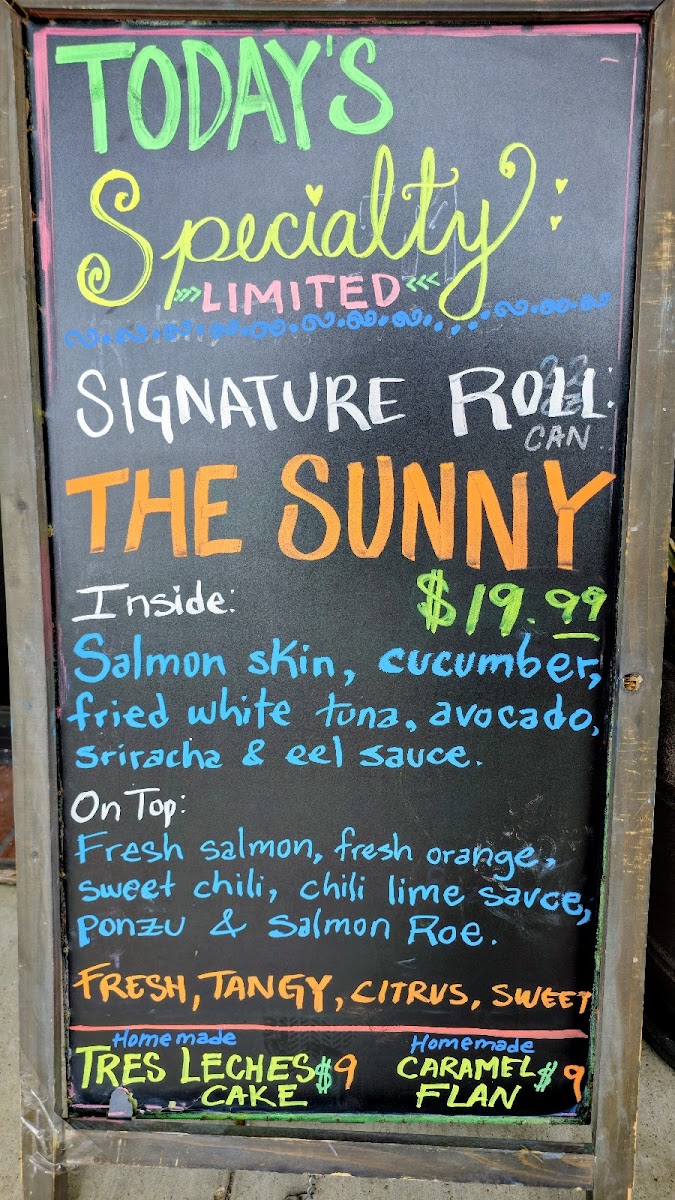 TODAY'S
Specialty:
>>>LIMITED<<<
SIGNATURE ROLL:
CAN
THE SUNNY
Inside: $19.99
Salmon skin, cucumber,
fried white tuna, avocado,
sriracha & eel sauce.
On Top:
Fresh salmon, fresh orange,
sweet chili, chili lime sauce,
ponzu & Salmon Roe.
FRESH, TANGY, CITRUS, SWEET
Homemade Homemade
TRES LECHES $9 CARAMEL $9
CAKE FLAN